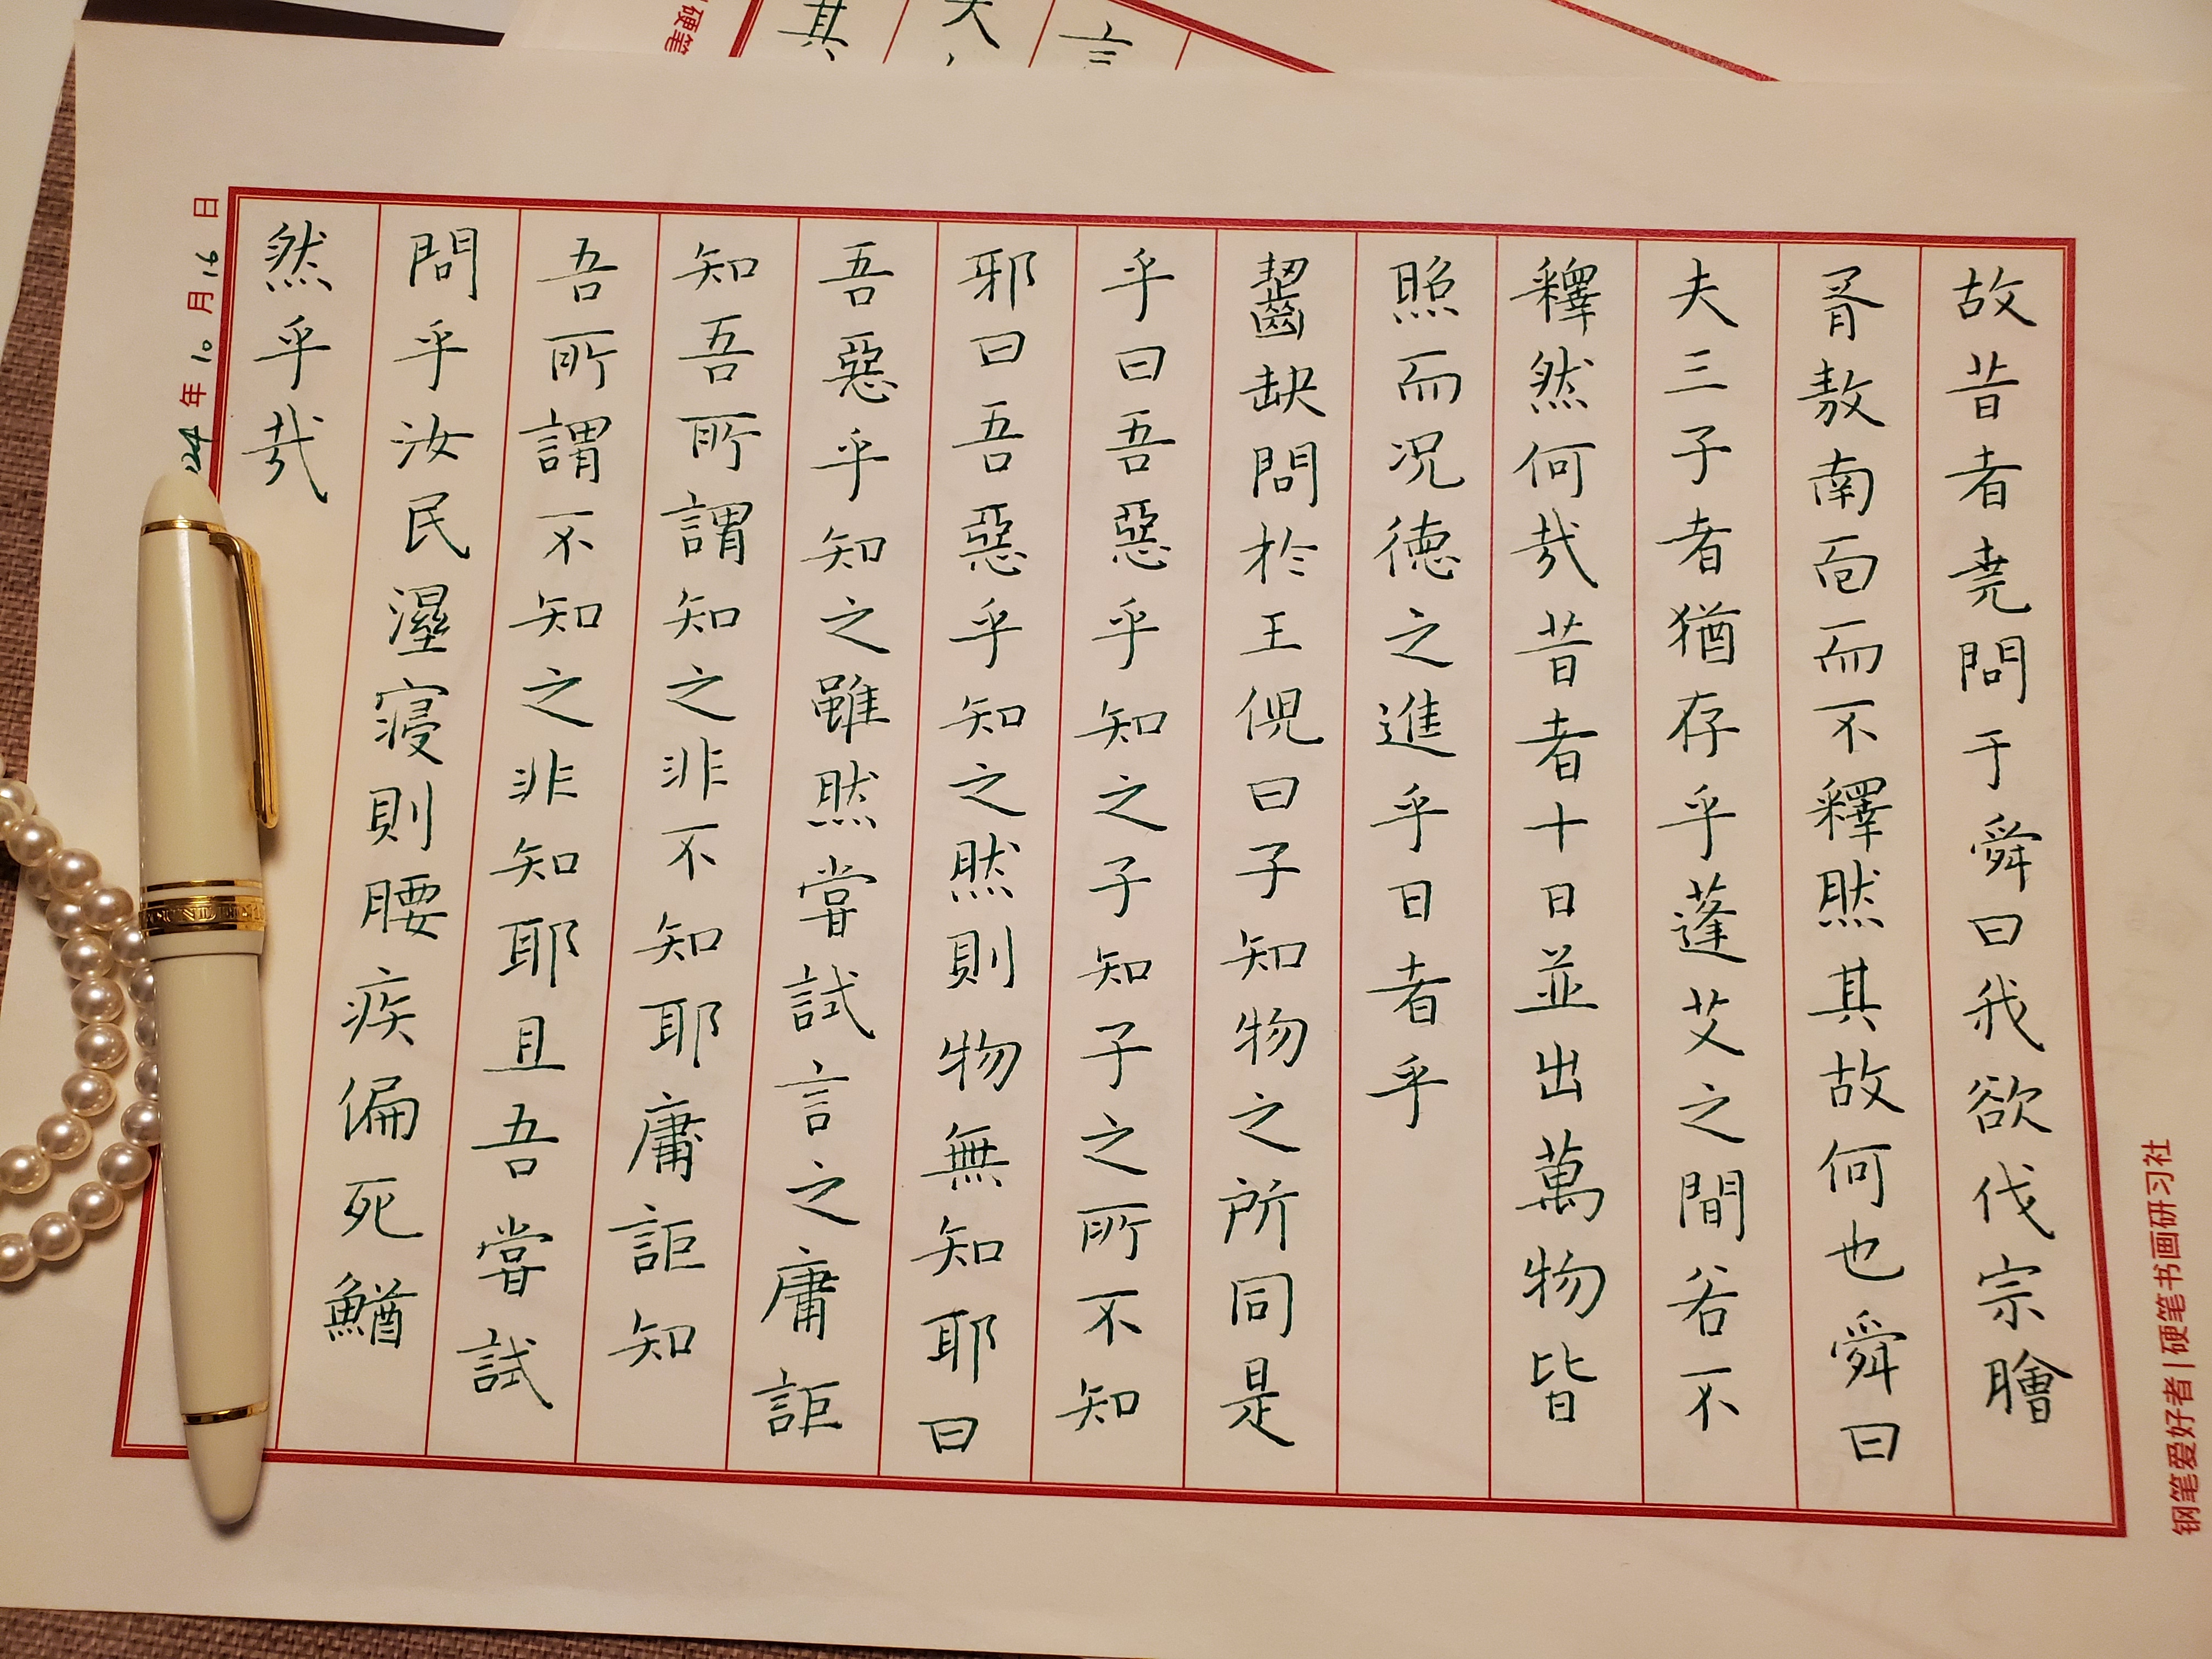 故昔者堯問于舜曰我欲伐宗膾
胥敖南面而不釋然其故何也舜曰
夫三子者猶存乎蓬艾之間若不
釋然何哉昔者十日並出萬物皆
照而况德之進乎日者乎
齧缺問於王倪曰子知物之所同是
乎曰吾惡乎知之子知子之所不知
邪曰吾惡乎知之然則物無知耶曰
吾惡乎知之雖然嘗試言之庸詎
知吾所謂知之非不知耶庸詎知
吾所謂不知之非知耶且吾嘗試
問乎汝民溼寝則腰疾偏死鰌
然乎哉
24年10月16日
钢笔爱好者|硬笔书画研习社
其
夫
言
硬笔